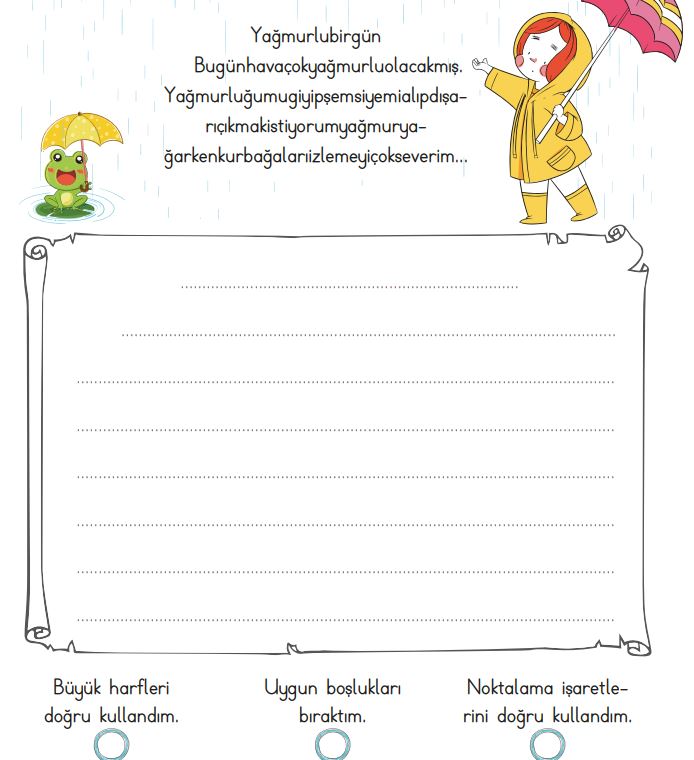 Yağmurlubirgün
Bugünhavaçokyağmurluolacakmış.
Yağmurluğumugiyipşemsiyemialıpdışa-
rıçıkmakistiyorumyağmurya-
ğarkenkurbağalarıizlemeyiçokseverim...
Büyük harfleri
doğru kullandım.
Uygun boşlukları
bıraktım.
Noktalama işaretle-
rini doğru kullandım.